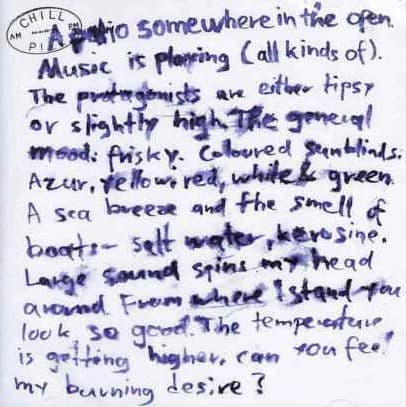 CHILL
AM PM
PILL
A patio somewhere in the open.
Music is playing (all kinds of).
The protagonists are either tipsy
or slightly high. The general
mood: frisky. Coloured sunblinds.
Azur, yellow, red, white & green.
A sea breeze and the smell of
boats - salt water, kerosine.
Large sound spins my head
around. From where I stand you
look so good. The temperature
is getting higher, can you feel
my burning desire?